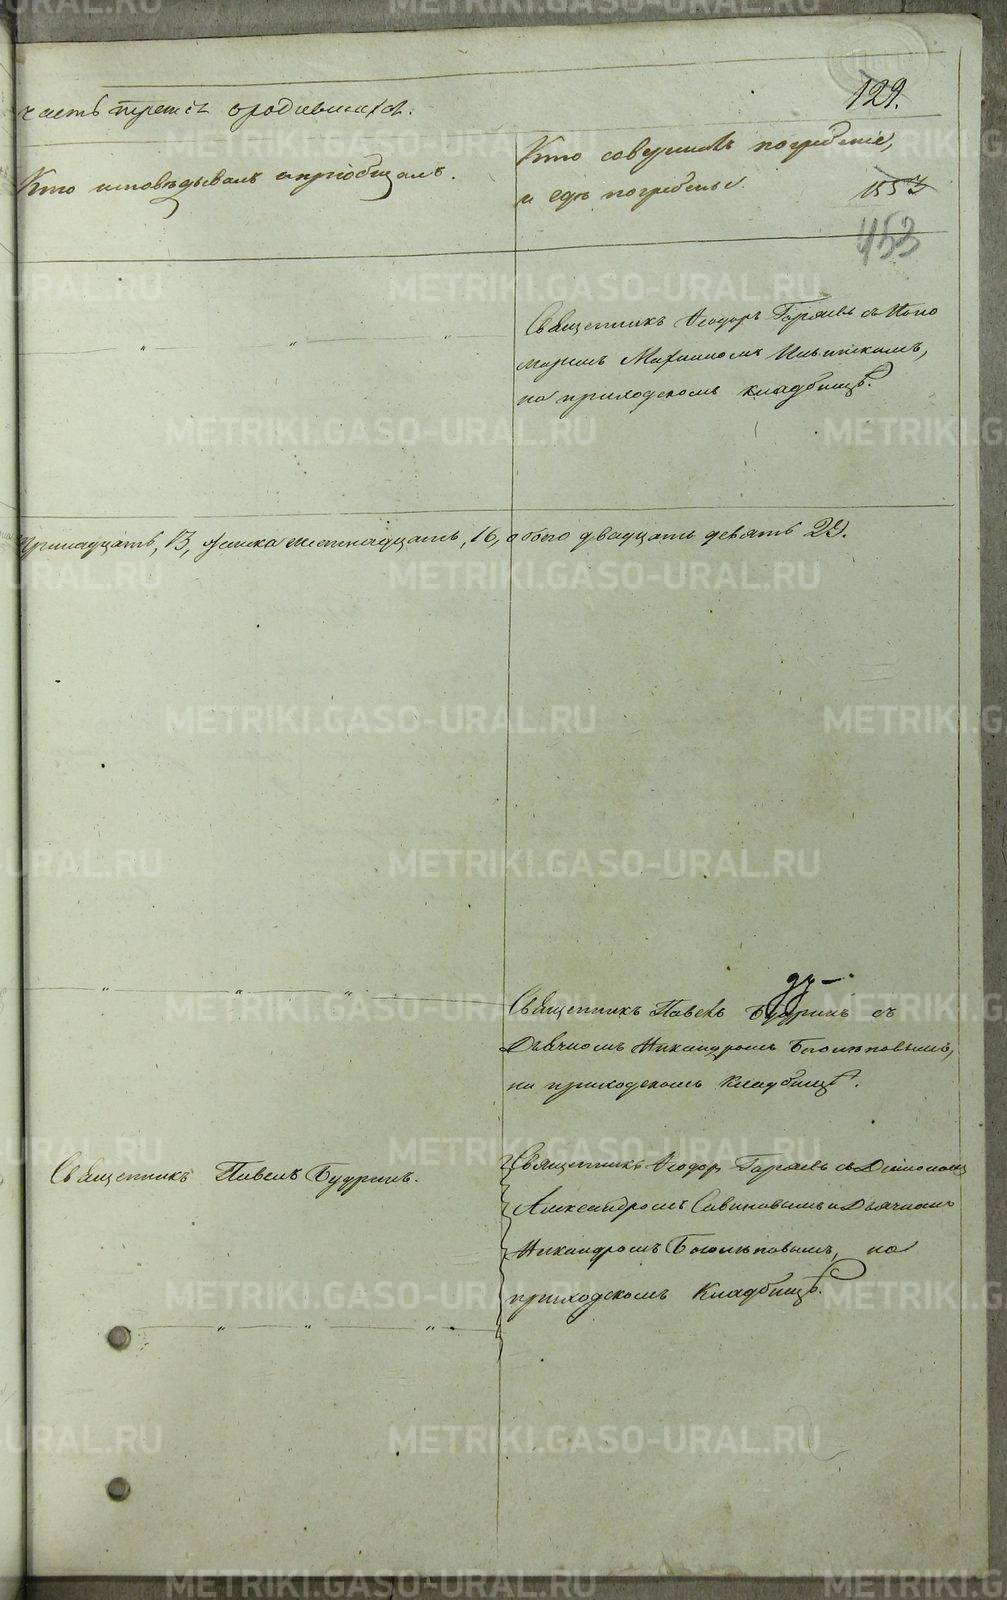 129.
часть третiя
Кто исповѣдывалъ и прiобщалъ.
Кто совершалъ погребенiе,
и гдѣ погребены.
1553
453
Священникъ Ѳеодоръ Горяевъ съ Поно
маремъ Ильинскимъ,
на приходскомъ кладбищѣ.
тринадцать, 13, женска шестнадцать, 16, обоего двадцать девять 29.
Священникъ Павелъ Будринъ съ
Дьячкомъ Никандромъ Боголѣповымъ,
на приходскомъ кладбищѣ.
Священникъ Павелъ Будринъ.
Священникъ Ѳеодоръ Горяевъ съ Дiакономъ
Александромъ Савиновымъ и Дьячкомъ
Никандромъ Боголѣповымъ, на
приходскомъ Кладбищѣ.
METRIKI.GASO-URAL.RU